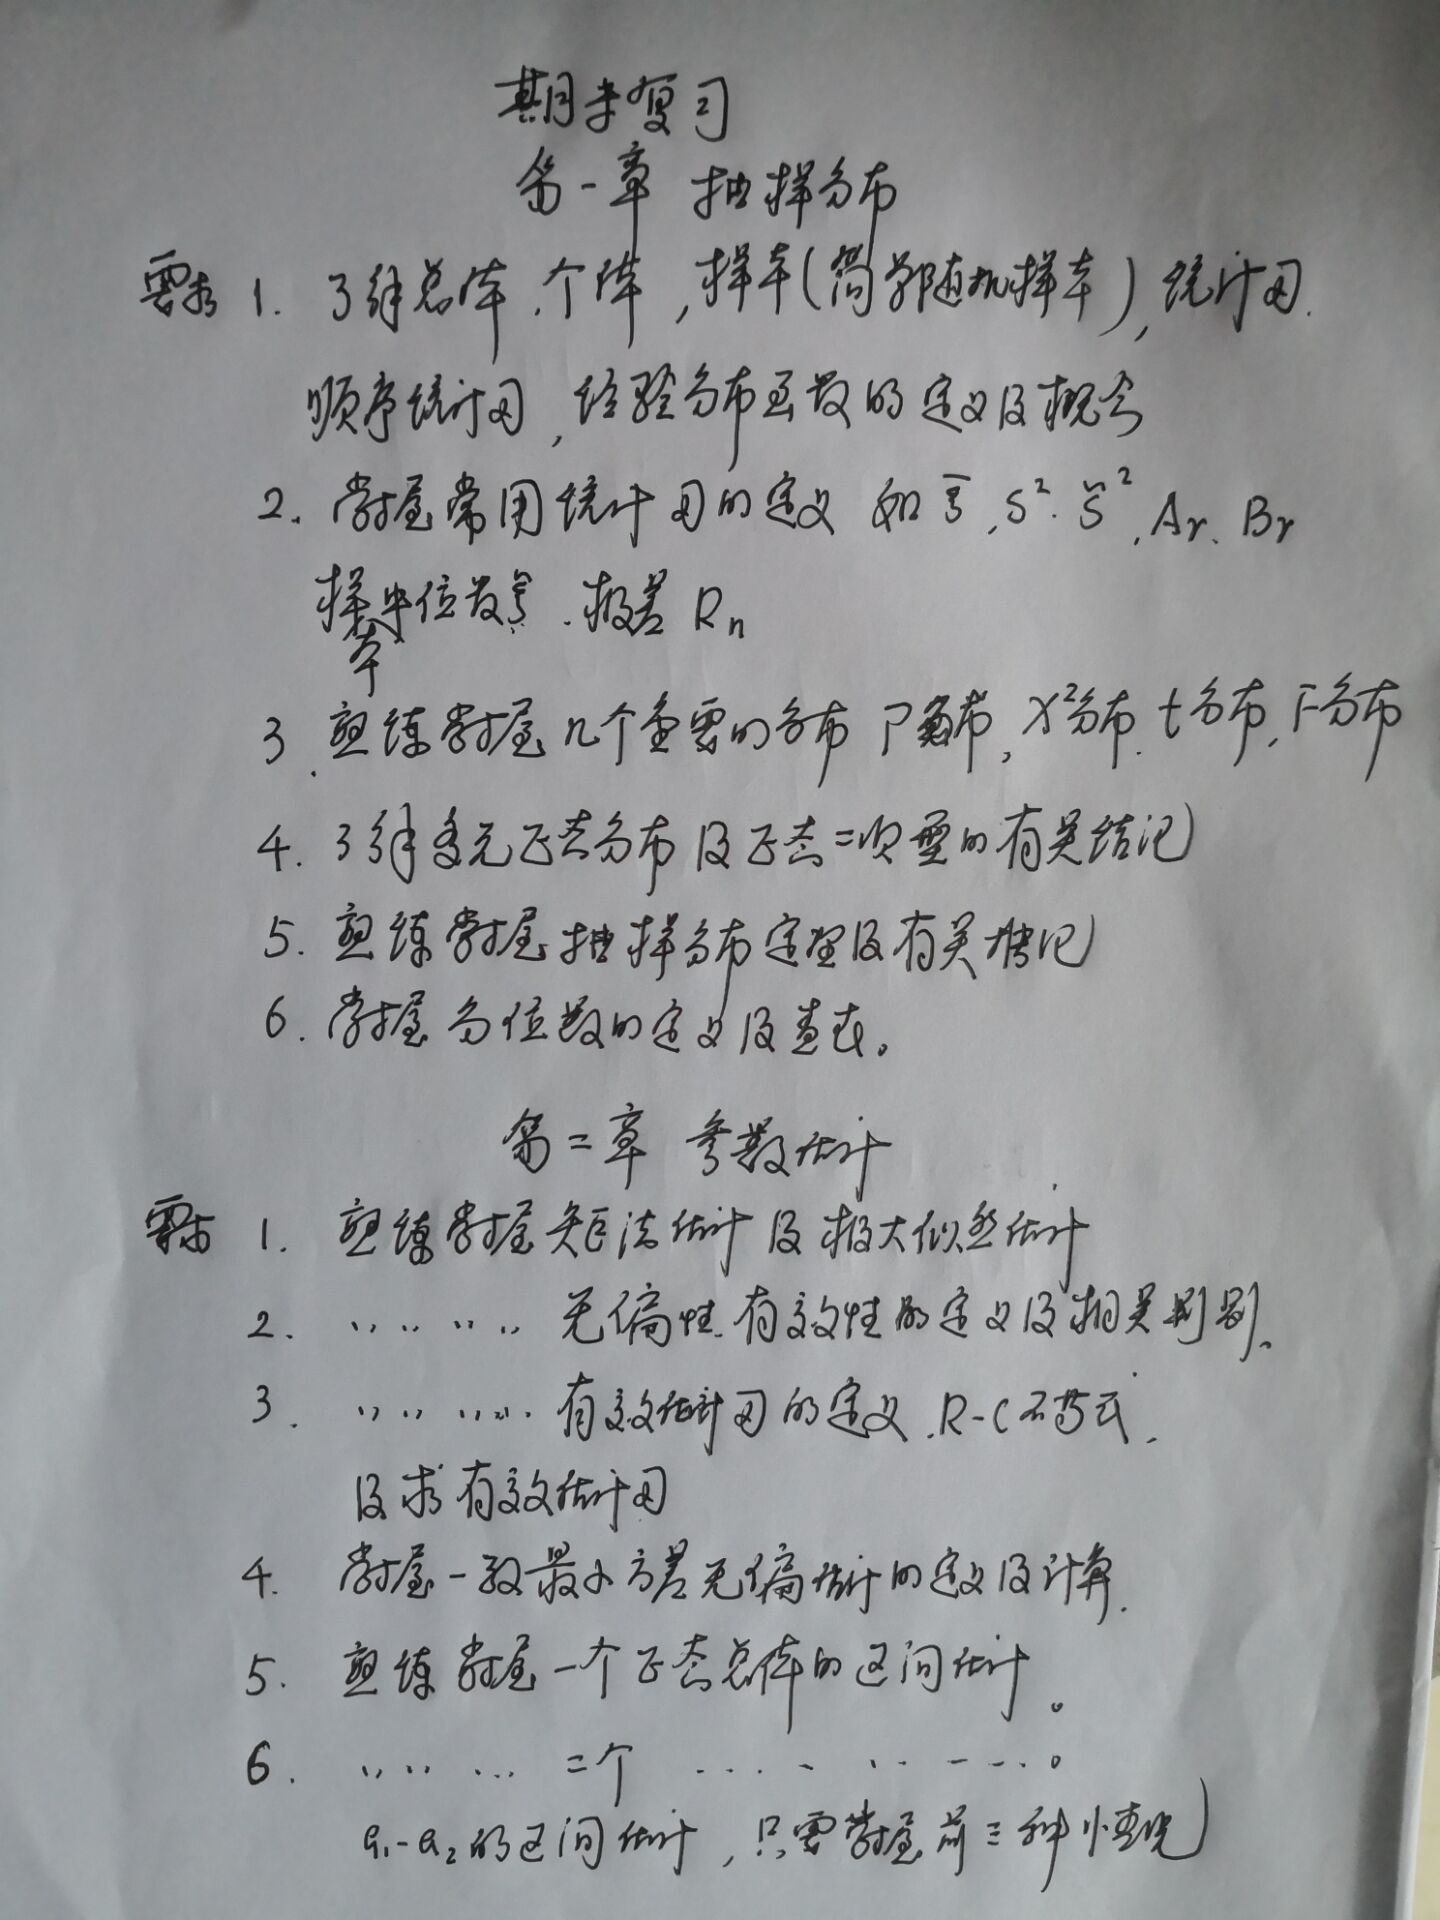 期末复习
第一章 抽样分布
要求 1. 了解总体、个体，样本(简单随机样本)，统计量.
顺序统计量，经验分布函数的定义及概念
2. 掌握常用统计量的定义 如 ξ̄, S². S̃², Ar、Br
样本中位数、极差 Rn
3. 熟练掌握几个重要的分布 Γ分布, χ²分布, t分布, F分布
4. 了解多元正态分布及正态二次型的有关结论
5. 熟练掌握抽样分布定理及有关推论
6. 掌握分位数的定义及查表。
第二章 参数估计
要求 1. 熟练掌握矩法估计及极大似然估计
2. ‥ ‥ ‥ ‥ 无偏性、有效性的定义及相关判别、
3. ‥ ‥ ‥ ‥ 有效估计量的定义. R-C不等式.
及求有效估计量
4. 掌握一致最小方差无偏估计的定义及计算.
5. 熟练掌握一个正态总体的区间估计。
6. ‥ ‥ ‥ 二个 ‥‥‥‥‥‥。
a₁-a₂的区间估计，只需掌握前三种情况)